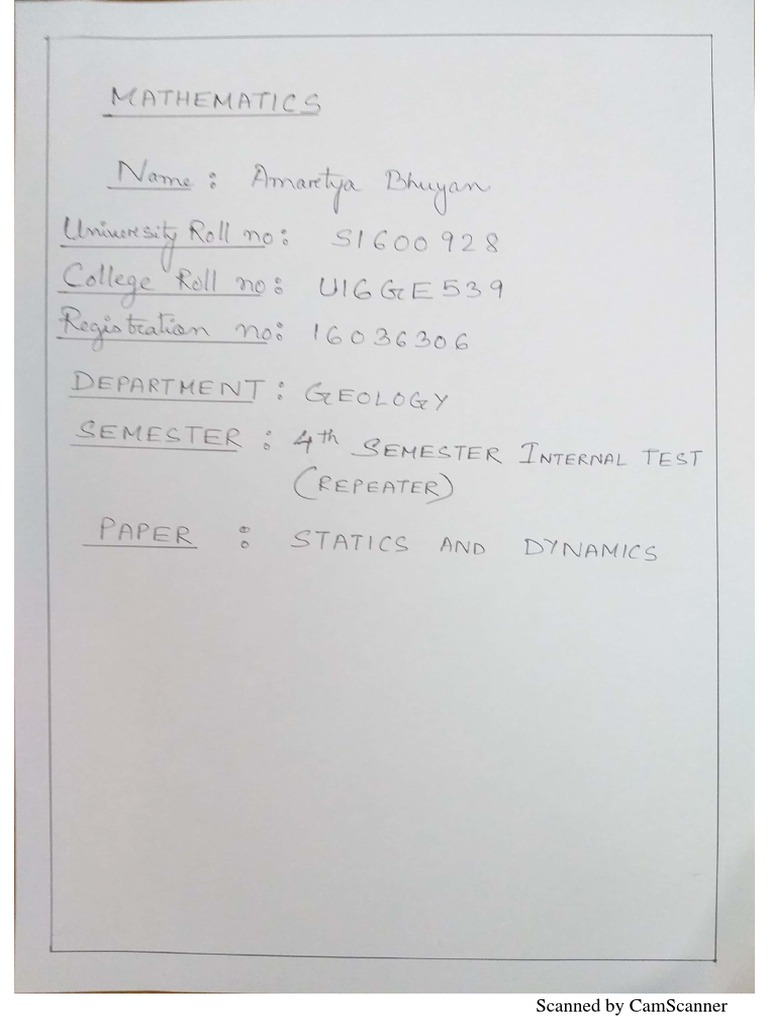 MATHEMATICS
Name : Amaretya Bhuyan
University Roll no: S1600928
College Roll no: U16GE539
Registration no: 16036306
DEPARTMENT : GEOLOGY
SEMESTER : 4th SEMESTER INTERNAL TEST
(REPEATER)
PAPER : STATICS AND DYNAMICS
Scanned by CamScanner